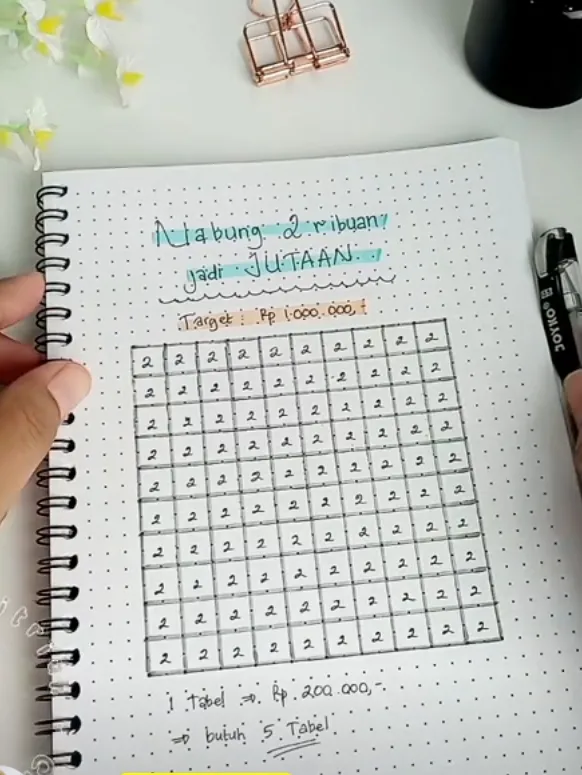 Nabung 2 ribuan
jadi JUTAAN
Target : Rp 1.000.000,-
2 2 2 2 2 2 2 2 2 2
2 2 2 2 2 2 2 2 2 2
2 2 2 2 2 2 2 2 2 2
2 2 2 2 2 2 2 2 2 2
2 2 2 2 2 2 2 2 2 2
2 2 2 2 2 2 2 2 2 2
2 2 2 2 2 2 2 2 2 2
2 2 2 2 2 2 2 2 2 2
2 2 2 2 2 2 2 2 2 2
2 2 2 2 2 2 2 2 2 2
1 Tabel => Rp 200.000,-
=> butuh 5 Tabel
JOYKO